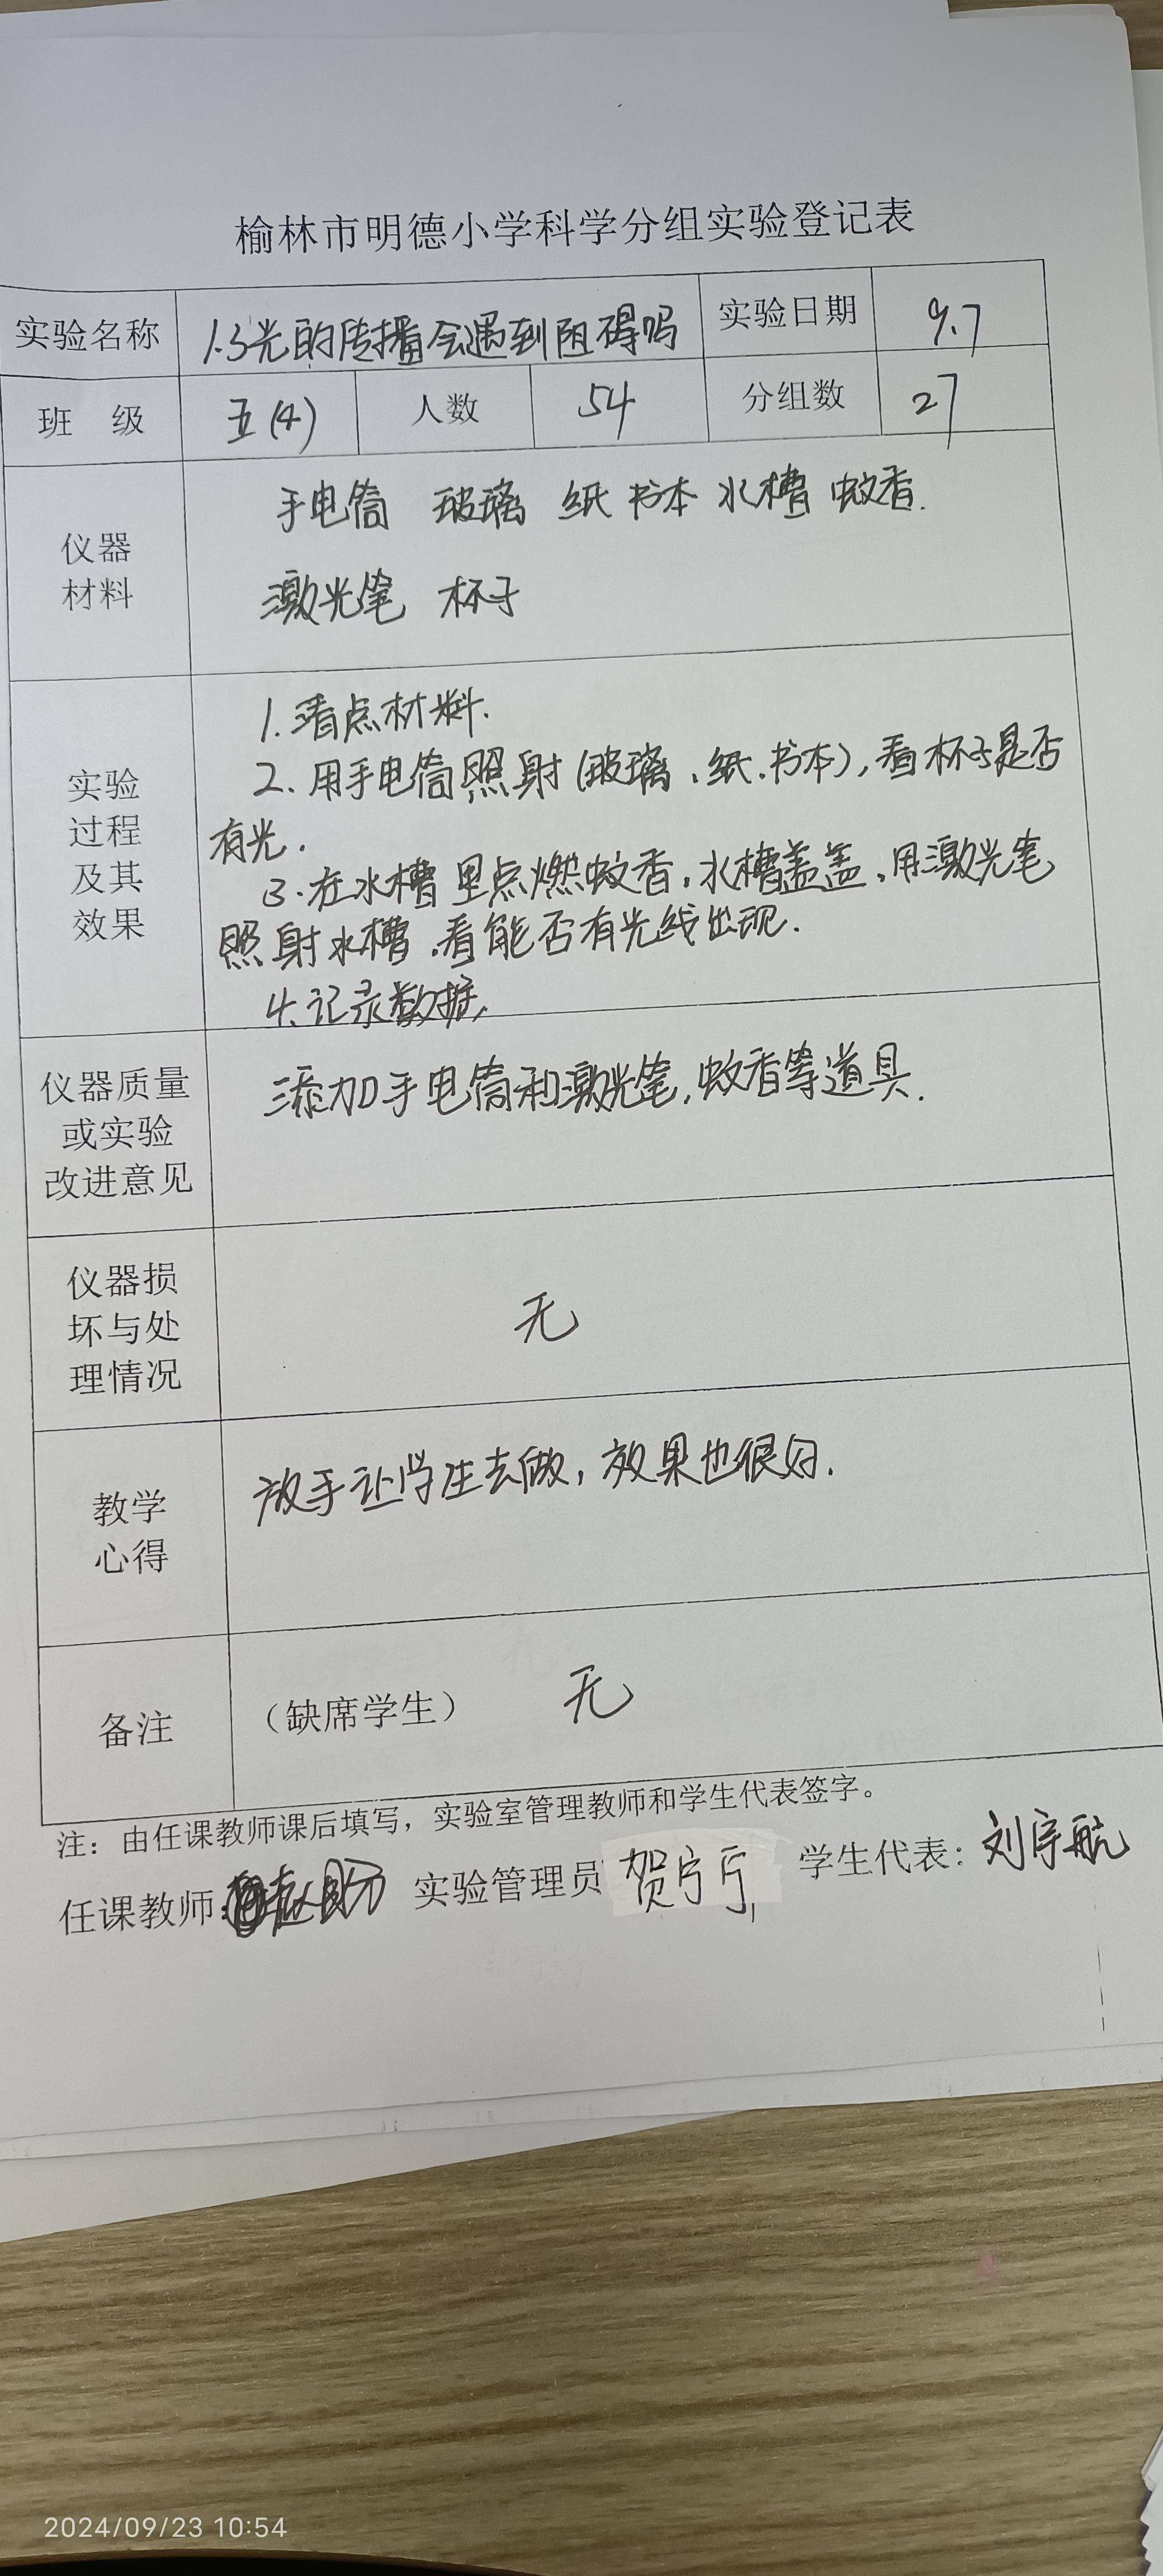 榆林市明德小学科学分组实验登记表
实验名称 1.3光的传播会遇到阻碍吗 实验日期 9.7
班 级 五(4) 人数 54 分组数 27
仪器
材料
手电筒 玻璃 纸 书本 水槽 蚊香.
激光笔 杯子
实验
过程
及其
效果
1.清点材料.
2.用手电筒照射(玻璃、纸、书本),看杯子是否
有光.
3.在水槽里点燃蚊香,水槽盖盖,用激光笔
照射水槽,看能否有光线出现.
4.记录数据,
仪器质量
或实验
改进意见
添加手电筒和激光笔,蚊香等道具.
仪器损
坏与处
理情况
无
教学
心得
放手让学生去做,效果也很好.
备注
(缺席学生) 无
注:由任课教师课后填写,实验室管理教师和学生代表签字。
任课教师: 实验管理员 贺宁 学生代表:刘宇航
2024/09/23 10:54